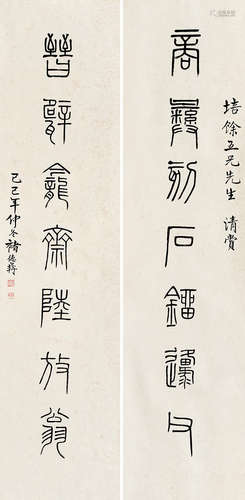 培餘五兄先生 清賞
商彝刻石鎦邍父
晉甓龕齋陸放翁
己巳年仲冬褚德彝